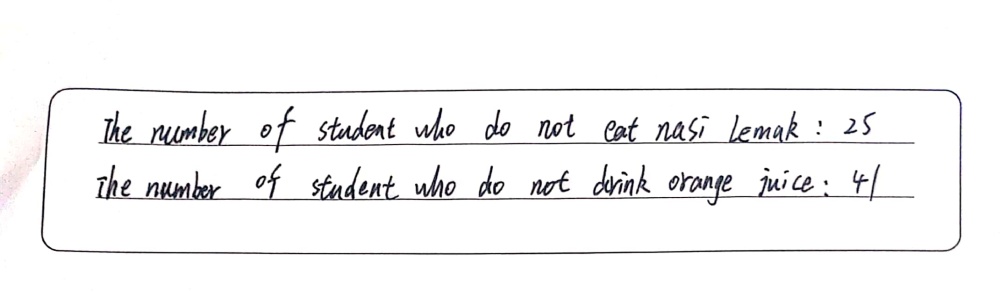 The number of student who do not eat nasi lemak : 25
The number of student who do not drink orange juice : 41